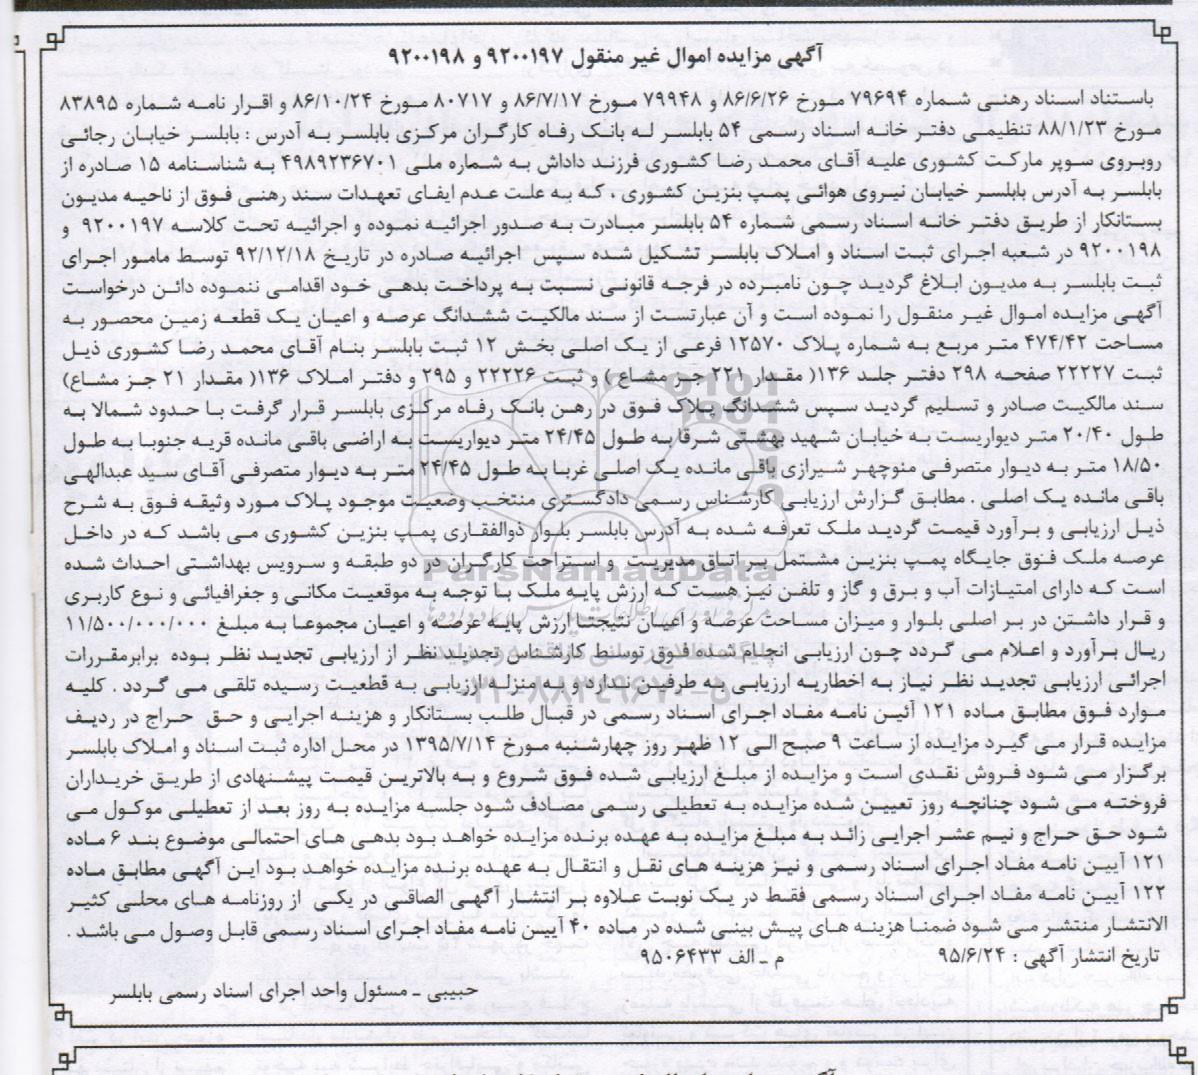 آگهی مزایده اموال غیر منقول ۹۲۰۰۱۹۷ و ۹۲۰۰۱۹۸
باستناد اسناد رهنی شماره ۷۹۶۹۴ مورخ ۸۶/۶/۲۶ و ۷۹۹۴۸ مورخ ۸۶/۷/۱۷ و ۸۰۷۱۷ مورخ ۸۶/۱۰/۲۴ و اقرار نامه شماره ۸۳۸۹۵
مورخ ۸۸/۱/۲۳ تنظیمی دفتر خانه اسناد رسمی ۵۴ بابلسر له بانک رفاه کارگران مرکزی بابلسر به آدرس : بابلسر خیابان رجائی
روبروی سوپر مارکت کشوری علیه آقای محمد رضا کشوری فرزند داداش به شماره ملی ۴۹۸۹۲۳۶۷۰۱ به شناسنامه ۱۵ صادره از
بابلسر به آدرس بابلسر خیابان نیروی هوائی پمپ بنزین کشوری ، که به علت عدم ایفای تعهدات سند رهنی فوق از ناحیه مدیون
بستانکار از طریق دفتر خانه اسناد رسمی شماره ۵۴ بابلسر مبادرت به صدور اجرائیه نموده و اجرائیه تحت کلاسه ۹۲۰۰۱۹۷ و
۹۲۰۰۱۹۸ در شعبه اجرای ثبت اسناد و املاک بابلسر تشکیل شده سپس اجرائیه صادره در تاریخ ۹۲/۱۲/۱۸ توسط مامور اجرای
ثبت بابلسر به مدیون ابلاغ گردید چون نامبرده در فرجه قانونی نسبت به پرداخت بدهی خود اقدامی ننموده دائن درخواست
آگهی مزایده اموال غیر منقول را نموده است و آن عبارتست از سند مالکیت ششدانگ عرصه و اعیان یک قطعه زمین محصور به
مساحت ۴۷۴/۴۲ متر مربع به شماره پلاک ۱۲۵۷۰ فرعی از یک اصلی بخش ۱۲ ثبت بابلسر بنام آقای محمد رضا کشوری ذیل
ثبت ۲۲۲۲۷ صفحه ۲۹۸ دفتر جلد ۱۳۶( مقدار ۲۲۱ جز مشاع ) و ثبت ۲۲۲۲۶ و ۲۹۵ و دفتر املاک ۱۳۶( مقدار ۲۱ جز مشاع)
سند مالکیت صادر و تسلیم گردید سپس ششدانگ پلاک فوق در رهن بانک رفاه مرکزی بابلسر قرار گرفت با حدود شمالا به
طول ۲۰/۴۰ متر دیواریست به خیابان شهید بهشتی شرقا به طول ۲۴/۴۵ متر دیواریست به اراضی باقی مانده قریه جنوبا به طول
۱۸/۵۰ متر به دیوار متصرفی منوچهر شیرازی باقی مانده یک اصلی غربا به طول ۲۴/۴۵ متر به دیوار متصرفی آقای سید عبدالهی
باقی مانده یک اصلی . مطابق گزارش ارزیابی کارشناس رسمی دادگستری منتخب وضعیت موجود پلاک مورد وثیقه فوق به شرح
ذیل ارزیابی و برآورد قیمت گردید ملک تعرفه شده به آدرس بابلسر بلوار ذوالفقاری پمپ بنزین کشوری می باشد که در داخل
عرصه ملک فوق جایگاه پمپ بنزین مشتمل بر اتاق مدیریت و استراحت کارگران در دو طبقه و سرویس بهداشتی احداث شده
است که دارای امتیازات آب و برق و گاز و تلفن نیز هست که ارزش پایه ملک با توجه به موقعیت مکانی و جغرافیائی و نوع کاربری
و قرار داشتن در بر اصلی بلوار و میزان مساحت عرصه و اعیان نتیجتا ارزش پایه عرصه و اعیان مجموعا به مبلغ ۱۱/۵۰۰/۰۰۰/۰۰۰
ریال برآورد و اعلام می گردد چون ارزیابی انجام شده فوق توسط کارشناس تجدید نظر از ارزیابی تجدید نظر بوده برابرمقررات
اجرائی ارزیابی تجدید نظر نیاز به اخطاریه ارزیابی به طرفین ندارد و به منزله ارزیابی به قطعیت رسیده تلقی می گردد . کلیه
موارد فوق مطابق ماده ۱۲۱ آئین نامه مفاد اجرای اسناد رسمی در قبال طلب بستانکار و هزینه اجرایی و حق حراج در ردیف
مزایده قرار می گیرد مزایده از ساعت ۹ صبح الی ۱۲ ظهر روز چهارشنبه مورخ ۱۳۹۵/۷/۱۴ در محل اداره ثبت اسناد و املاک بابلسر
برگزار می شود فروش نقدی است و مزایده از مبلغ ارزیابی شده فوق شروع و به بالاترین قیمت پیشنهادی از طریق خریداران
فروخته می شود چنانچه روز تعیین شده مزایده به تعطیلی رسمی مصادف شود جلسه مزایده به روز بعد از تعطیلی موکول می
شود حق حراج و نیم عشر اجرایی زائد به مبلغ مزایده به عهده برنده مزایده خواهد بود بدهی های احتمالی موضوع بند ۶ ماده
۱۲۱ آیین نامه مفاد اجرای اسناد رسمی و نیز هزینه های نقل و انتقال به عهده برنده مزایده خواهد بود این آگهی مطابق ماده
۱۲۲ آیین نامه مفاد اجرای اسناد رسمی فقط در یک نوبت علاوه بر انتشار آگهی الصاقی در یکی از روزنامه های محلی کثیر
الانتشار منتشر می شود ضمنا هزینه های پیش بینی شده در ماده ۴۰ آیین نامه مفاد اجرای اسناد رسمی قابل وصول می باشد .
تاریخ انتشار آگهی : ۹۵/۶/۲۴ م - الف ۹۵۰۶۴۳۳
حبیبی - مسئول واحد اجرای اسناد رسمی بابلسر
ParsNamadData
۰۲۱-۸۸۳۴۹۶۷۰-۵